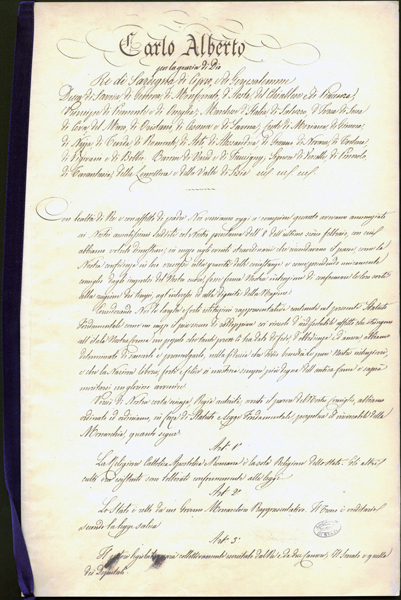 Carlo Alberto
per la grazia di Dio
Re di Sardegna, di Cipro, e di Gerusalemme
Duca di Savoia, di Genova, di Monferrato, d'Aosta, del Chiablese, di
Principe di Piemonte e di Oneglia; Marchese d'Italia, di Saluzzo, d'Ivrea, di Susa,
di Ceva, del Maro, di Oristano, di Cesana e di Savona; Conte di Moriana, di Geneva,
di Nizza, di Tenda, di Romonte, di Asti, di Alessandria, di Goceano, di Novara, di Tortona,
di Vigevano e di Bobbio; Barone di Vaud e di Faucigny; Signore di Vercelli, di Pinerolo,
di Tarantasia, della Lomellina e della Valle di Sesia, ecc. ecc. ecc.
Con lealtà di Re e con affetto di padre Noi veniamo oggi a compiere quanto avevamo annunziato
ai Nostri amatissimi sudditi col Nostro proclama dell'8 dell'ultimo scorso febbraio, con cui
abbiamo voluto dimostrare, in mezzo agli eventi straordinarii che circondavano il paese, come la
Nostra confidenza in loro crescesse colla gravità delle circostanze, e come prendendo unicamente
consiglio dagli impulsi del Nostro cuore, fosse ferma Nostra intenzione di conformare le loro sorti
alla ragione dei tempi, agli interessi ed alla dignità della Nazione.
Considerando Noi le larghe e forti istituzioni rappresentative contenute nel presente Statuto
Fondamentale come un mezzo il più sicuro di raddoppiare coi vincoli d'indissolubile affetto che stringono
all'itala Nostra Corona un popolo, che tante prove Ci ha dato di fede, d'obbedienza e d'amore, abbiamo
determinato di sancirlo e promulgarlo, nella fiducia che Iddio benedirà le pure Nostre intenzioni,
e che la Nazione libera, forte e felice si mostrerà sempre più degna dell'antica fama e saprà
meritarsi un glorioso avvenire.
Perciò di Nostra certa scienza, Regia autorità, avuto il parere del Nostro Consiglio, abbiamo
ordinato ed ordiniamo, in forza di Statuto e Legge fondamentale, perpetua ed irrevocabile della
Monarchia, quanto segue:
Art. 1°
La Religione Cattolica, Apostolica e Romana è la sola Religione dello Stato. Gli altri
culti ora esistenti sono tollerati conformemente alle leggi.
Art. 2°
Lo Stato è retto da un Governo Monarchico Rappresentativo. Il Trono è ereditario
secondo la legge salica.
Art. 3°
Il potere legislativo sarà collettivamente esercitato dal Re e da due Camere, il Senato e quella
dei Deputati.